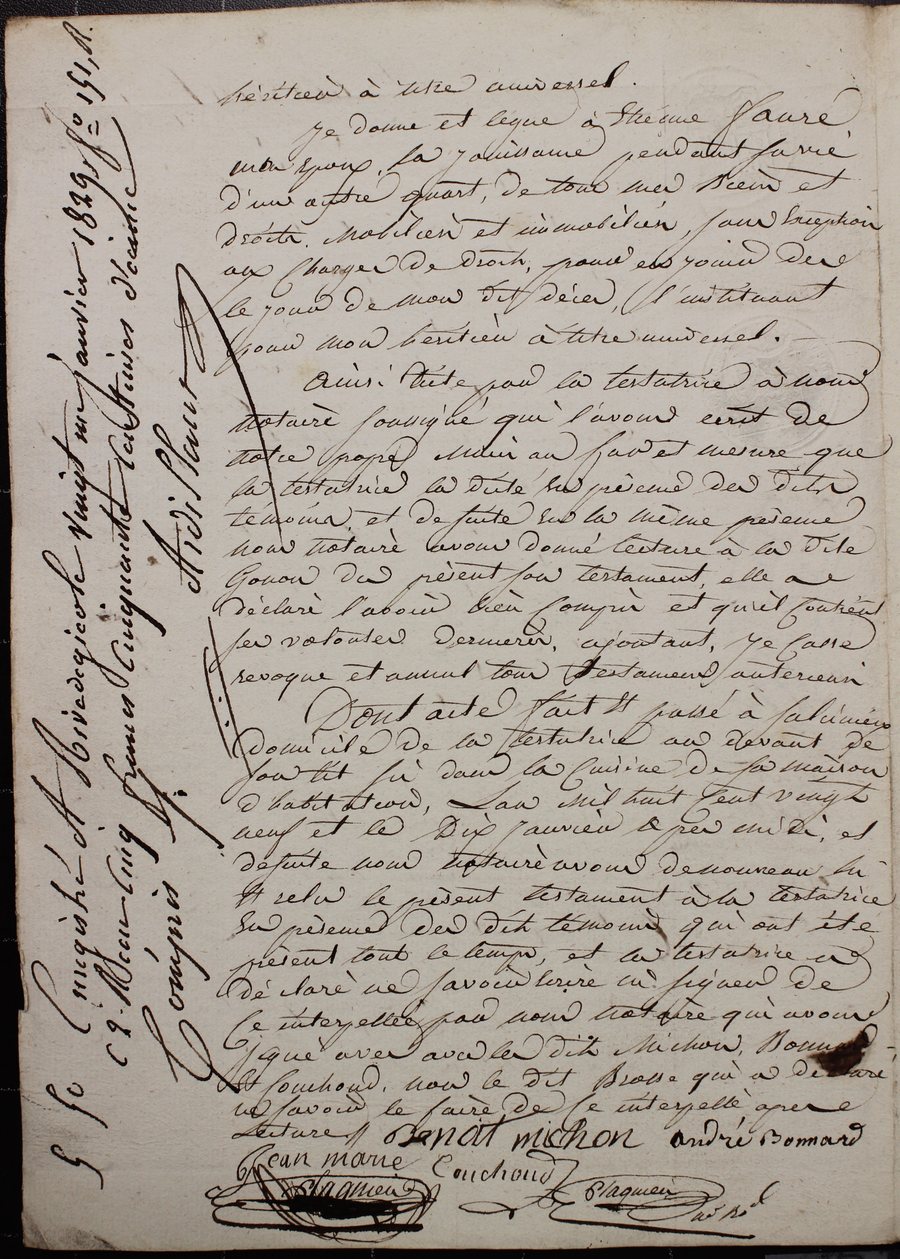 héritier à titre universel.
Je donne et legue à Etienne Fauré
mon epoux, la jouissance pendant sa vie
d'un autre quart, de tous mes Biens et
droits. Mobiliers et immobiliers, sans Exception
aux Charges de droit, pour en jouir des
le jour de mon dit décès, l'instituant
pour mon héritier à titre universel.
Ainsi dicté par la testatrice à nous
Notaire soussigné qui l'avons ecrit de
notre propre Main au fur et mesure que
la testatrice la dicté en présence des dits
temoins, et de suite en la même présence
nous Notaire avons donné lecture à la dite
Gonon du présent son testament, elle a
déclaré l'avoir bien compris et qu'il contient
ses volontés dernieres, ajoutant, Je casse
revoque et annul tous testamens anterieurs
Dont acte fait et passé à
domicile de la testatrice au devant de
son lit sis dans la Cuisine de sa maison
d'habitation, L'an Mil huit Cent vingt
neuf et le Dix Janvier apres midi, et
de suite nous Notaire avons de nouveau lu
et relu le présent testament à la testatrice
En présence des dits témoins qui ont été
présent tout le temps, et la testatrice a
déclaré ne savoir écrire ni signer de
Ce interpellée par nous notaire qui avons
signé avec les dits Michon, Bonnard
et Couchoud, non le dit Brosse qui a déclaré
ne savoir le faire de Ce interpellé apres
Lecture //
Benoit michon andré Bonnard
Jean marie Couchoud
Plagnieu
Plagnieu
no Rd
Enregistré à Rivedegier le vingt un janvier 1829, fo 151, R.
C 9. Reçu Cinq francs cinquante centimes dixième
Compris //.
5 50